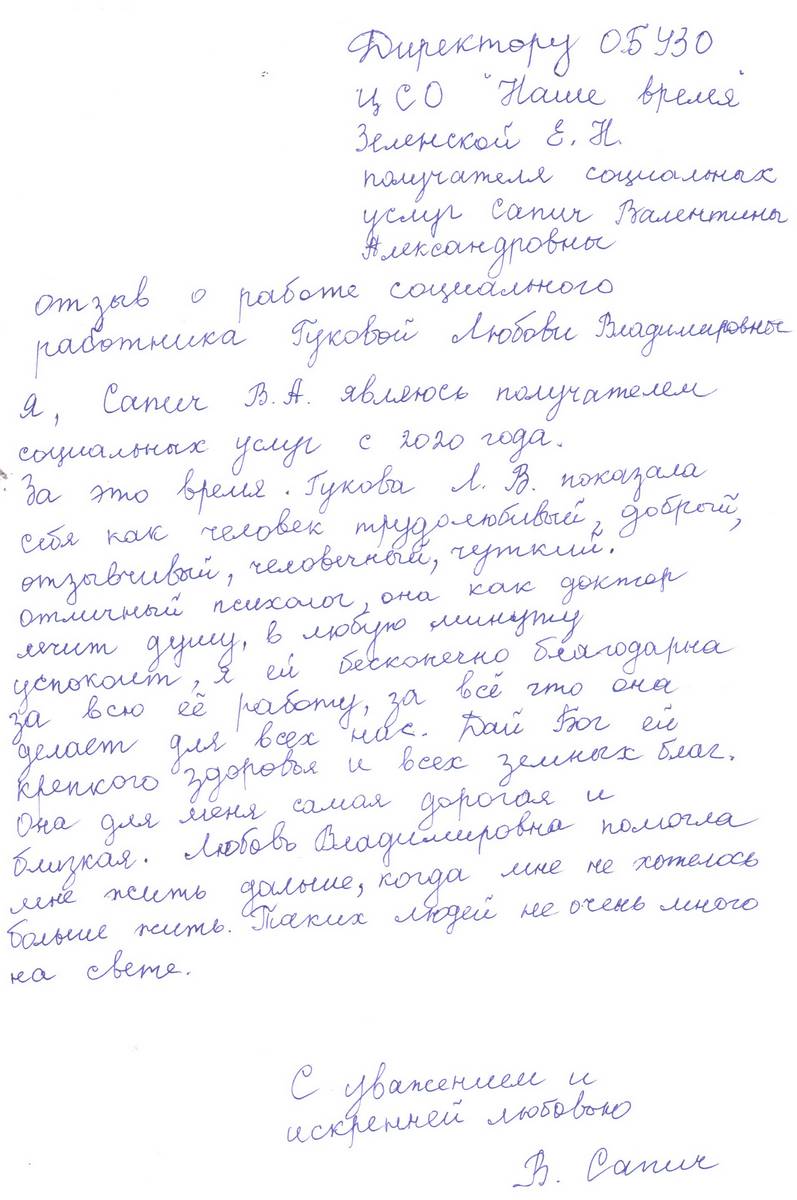 Директору ОБУЗО
ЦСО "Наше время"
Зеленской Е. Н.
получателя социальных
услуг Сапич Валентины
Александровны
отзыв о работе социального
работника Гуковой Любови Владимировны
Я, Сапич В.А. являюсь получателем
социальных услуг с 2020 года.
За это время. Гукова Л. В. показала
себя как человек трудолюбивый, добрый,
отзывчивый, человечный, чуткий.
отличный психолог, она как доктор
лечит душу, в любую минуту
успокоит, я ей бесконечно благодарна
за всю её работу, за всё что она
делает для всех нас. Дай Бог ей
крепкого здоровья и всех земных благ.
Она для меня самая дорогая и
близкая. Любовь Владимировна помогла
мне жить дальше, когда мне не хотелось
больше жить. Таких людей не очень много
на свете.
С уважением и
искренней любовью
В. Сапич